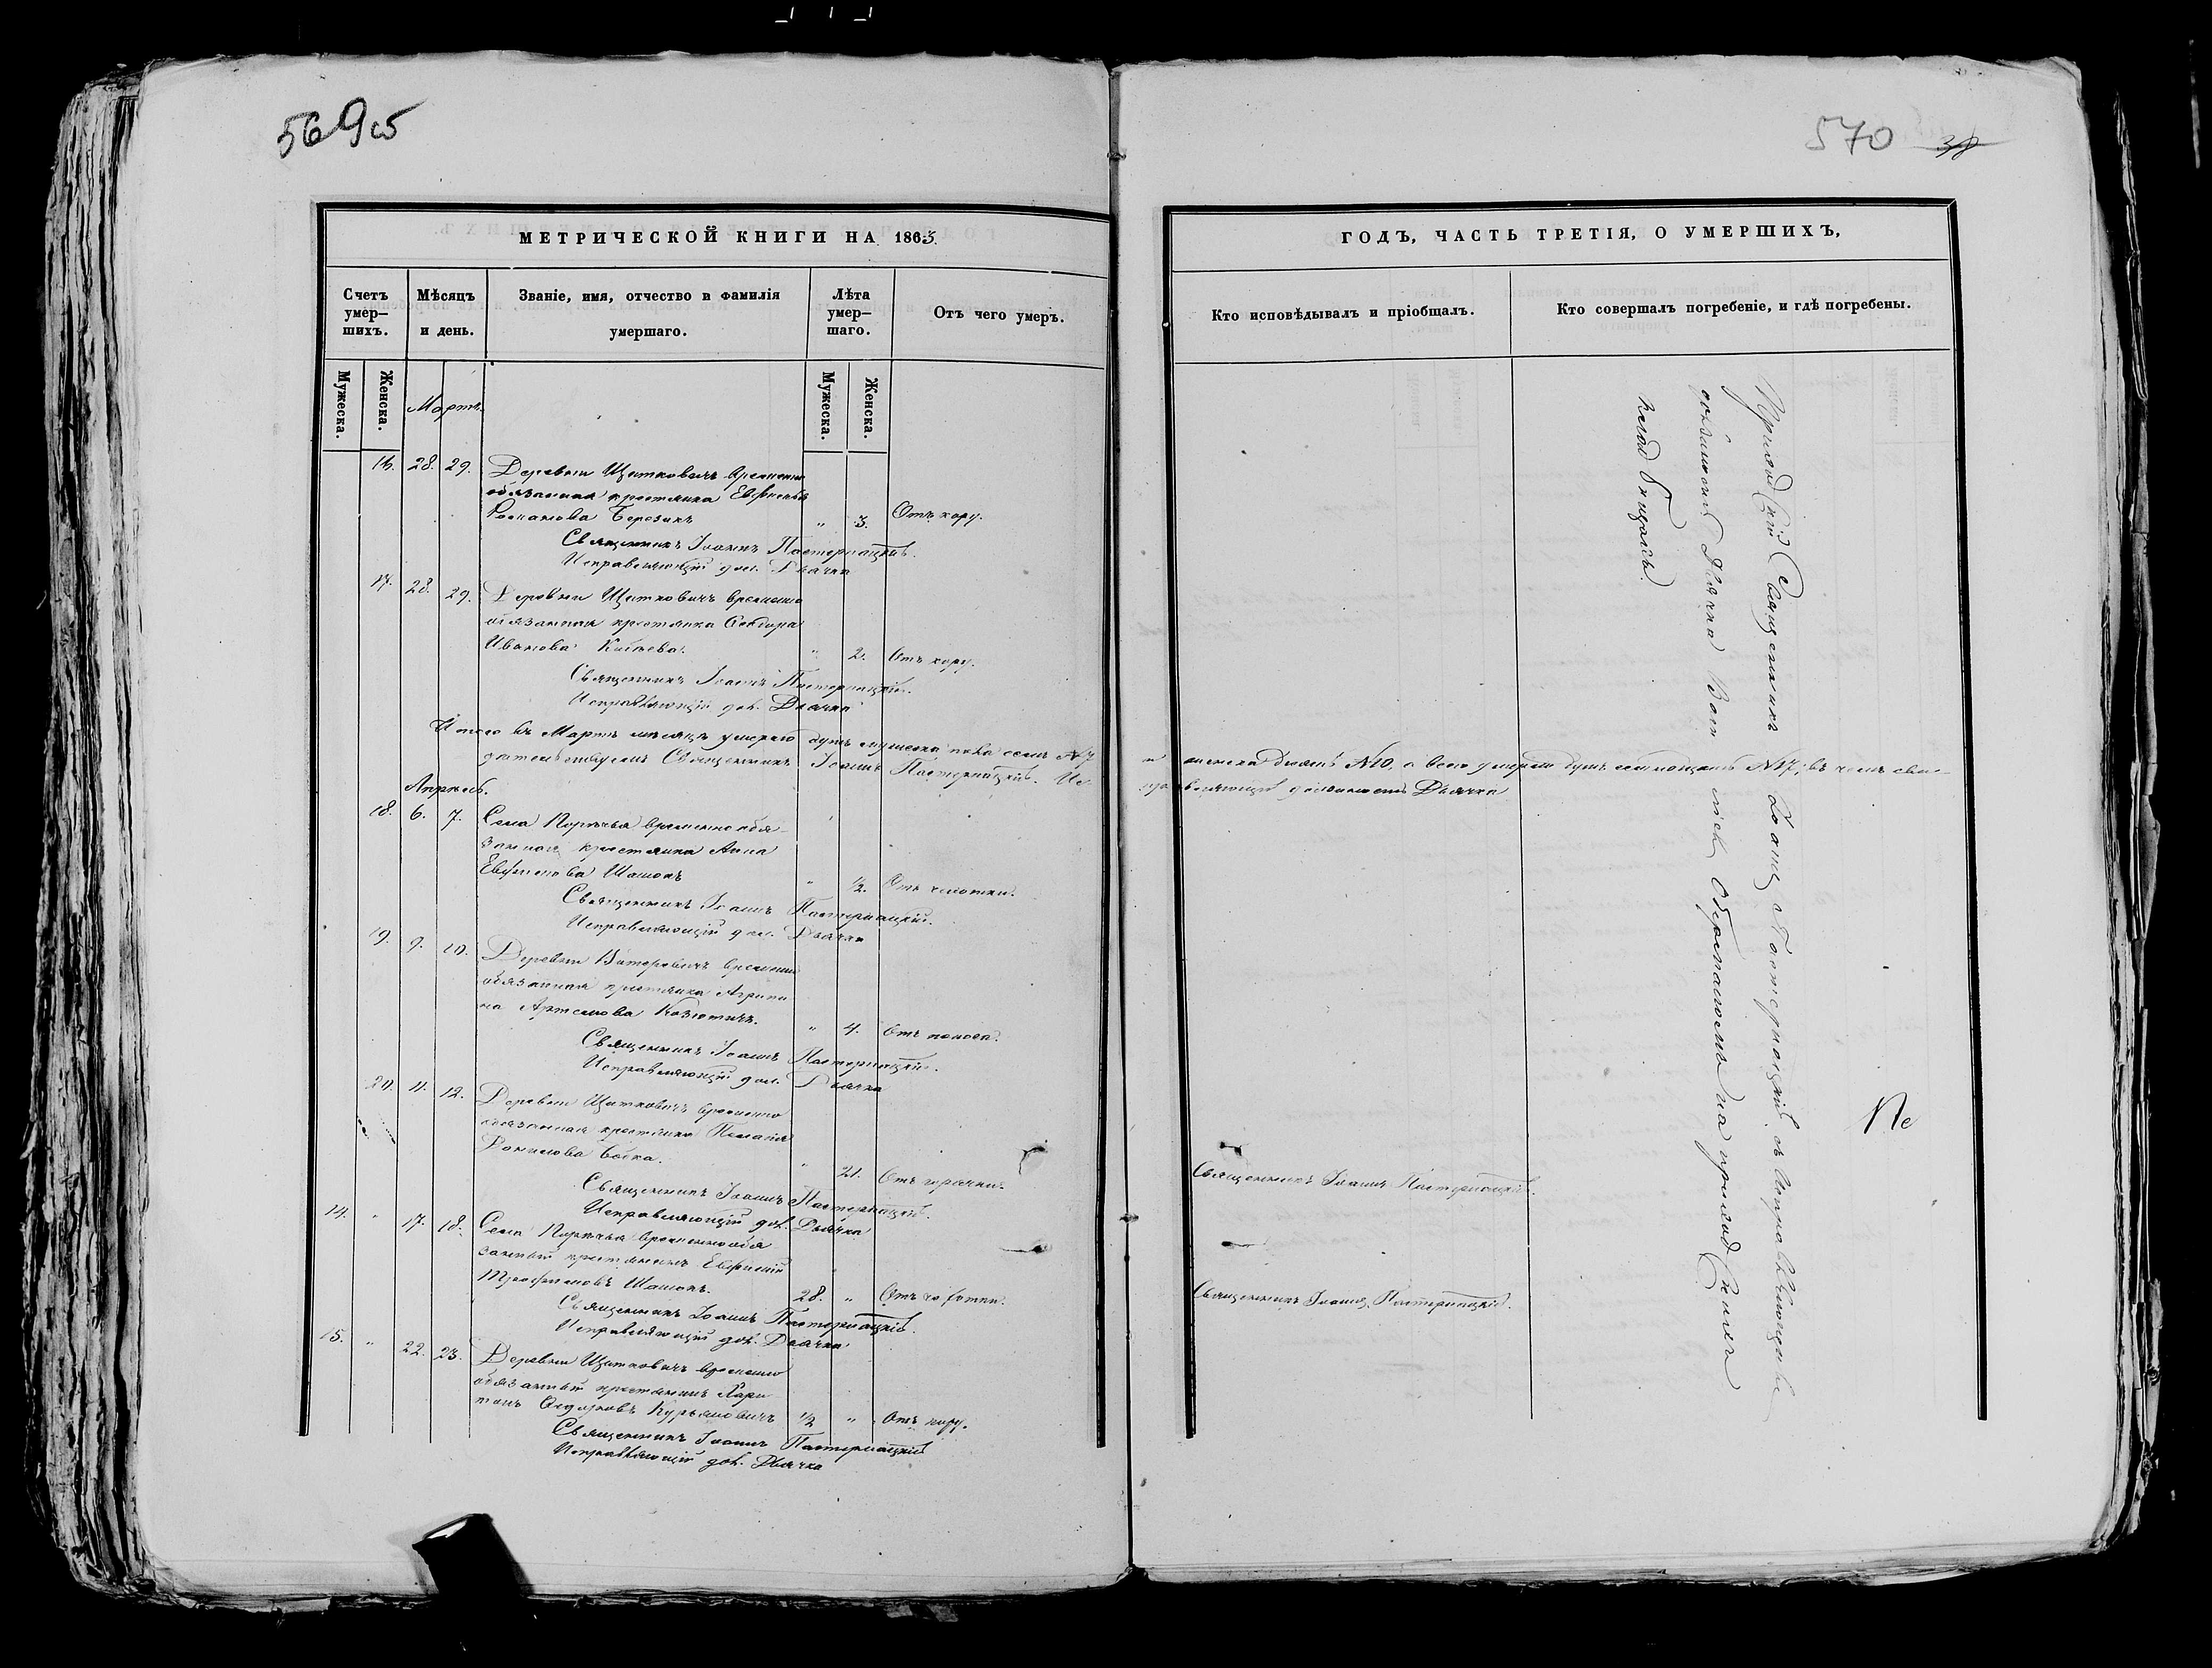 569об
570 38
МЕТРИЧЕСКОЙ КНИГИ НА 1863.
Счетъ умер-шихъ.
Мѣсяцъ и день.
Званіе, имя, отчество и фамилія умершаго.
Лѣта умер-шаго.
Отъ чего умеръ.
Мужеска.
Женска.
Мужеска.
Женска.
Мартъ.
16. 28. 29. Деревни Щитковичъ временно
обязанная крестянка Евфимья
Романова Березикъ " 3. Отъ кору.
Священникъ Іоаннъ Пастернацкій.
Исправляющій дол. Дьячка
17. 28. 29. Деревни Щитковичъ временно
обязанная крестянка Феодора
Иванова " 2. Отъ кору.
Священникъ Іоаннъ Пастернацкій.
Исправляющій дол. Дьячка
Итого въ Мартѣ мѣсяцѣ умерло душъ мужеска пола семь №7
дѣтельствуемъ Священникъ Іоаннъ Пастернацкій. Ис-
Апрель.
18. 6. 7. Села Порѣчья временнообя-
занная крестянка Анна
Евфимова Шашокъ " 1/2. Отъ чахотки.
Священникъ Іоаннъ Пастернацкій.
Исправляющій дол. Дьячка
19. 9. 10. Деревни временно
обязанная крестянка Агрипи
на Артемова " 4. Отъ поноса.
Священникъ Іоаннъ Пастернацкій.
Исправляющій дол. Дьячка
20. 11. 12. Деревни Щитковичъ временно
обязанная крестянка Пелагія
Данилова " 21. Отъ горячки.
Священникъ Іоаннъ Пастернацкій.
Исправляющій дол. Дьячка
14. " 17. 18. Села Порѣчья временнообя
занный крестянинъ Евфимій
Трофимовъ Шашокъ. 28. " Отъ чахотки.
Священникъ Іоаннъ Пастернацкій.
Исправляющій дол. Дьячка
15. " 22. 23. Деревни Щитковичъ временно
обязанный крестянинъ Хари
тонъ Федоровъ Курьяновичъ 1/2 " Отъ кору.
Священникъ Іоаннъ Пастернацкій
Исправляющій дол. Дьячка
ГОДЪ, ЧАСТЬ ТРЕТІЯ, О УМЕРШИХЪ,
Кто исповѣдывалъ и пріобщалъ.
Кто совершалъ погребеніе, и гдѣ погребены.
и женска десять №10, а всего умерло душъ семнадцать №17, въ чемъ сви-
правляющій должность Дьячка
Священникъ Іоаннъ Пастернацкій.
Священникъ Іоаннъ Пастернацкій.
Приходскій Священникъ Іоаннъ Пастернацкій съ Исправляющимъ
должность Дьячка на приходскихъ
кладбищахъ.